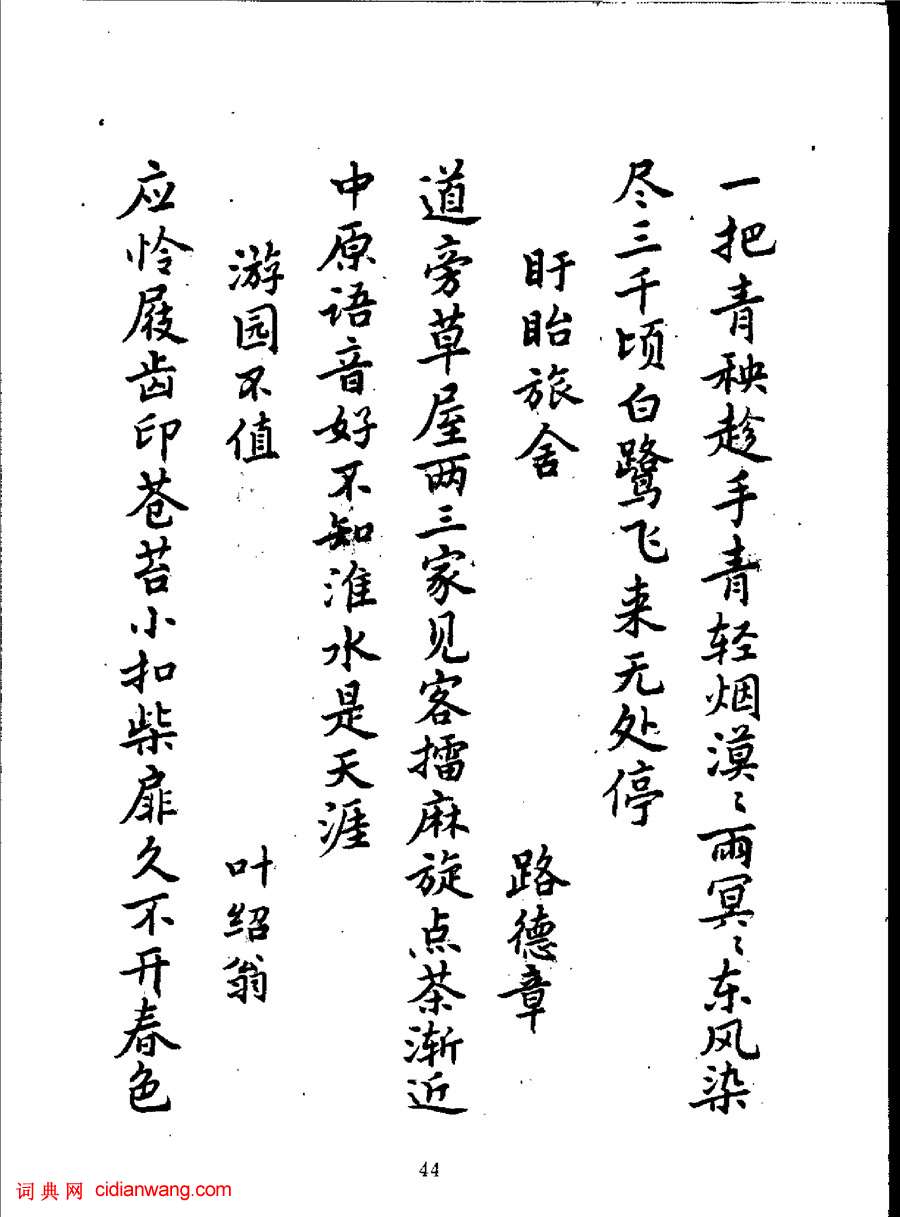 一把青秧趁手青轻烟漠〻雨冥〻东风染
尽三千顷白鹭飞来无处停
盱眙旅舍 路德章
道旁草屋两三家见客擂麻旋点茶渐近
中原语音好不知淮水是天涯
游园不值 叶绍翁
应怜屐齿印苍苔小扣柴扉久不开春色
44
词典网 cidianwang.com